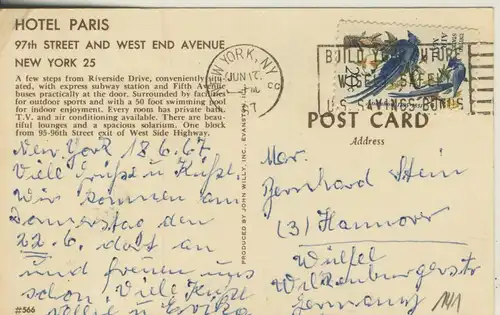 HOTEL PARIS
97th STREET AND WEST END AVENUE
NEW YORK 25
A few steps from Riverside Drive, conveniently situ-
ated, with express subway station and Fifth Avenue
buses practically at the door. Surrounded by facilities
for outdoor sports and with a 50 foot swimming pool
for indoor enjoyment. Every room has private bath,
T.V. and air conditioning available. There are beau-
tiful lounges and a spacious solarium. One block
from 95-96th Street exit of West Side Highway.
New York 18.6.67.
Viele Grüße u Küße.
Wir kommen am
Donnerstag den
22.6. dort an
und freuen uns
schon. Viele Küße
u Erika
#566
PRODUCED BY JOHN WILLY, INC., EVANSTON, ILL.
W YORK, N.Y.
JUN 17
PM
BUILD YOUR FUTURE
WISELY SAFELY
U.S. SAVINGS BONDS
AIR MAIL
POST CARD
Address
Bernhard Stein
(3) Hannover
Wülfel
Wilkenburgerstr
Germany